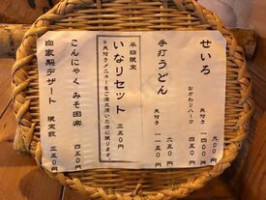 せいろ 九〇〇円
天付き 一四〇〇円
おかわりハーフ
手打うどん 六五〇円
天付き 一一五〇円
平日限定
いなりセット 三五〇円
こんにゃくみそ田楽 四五〇円
自家製デザート 限定数 三五〇円